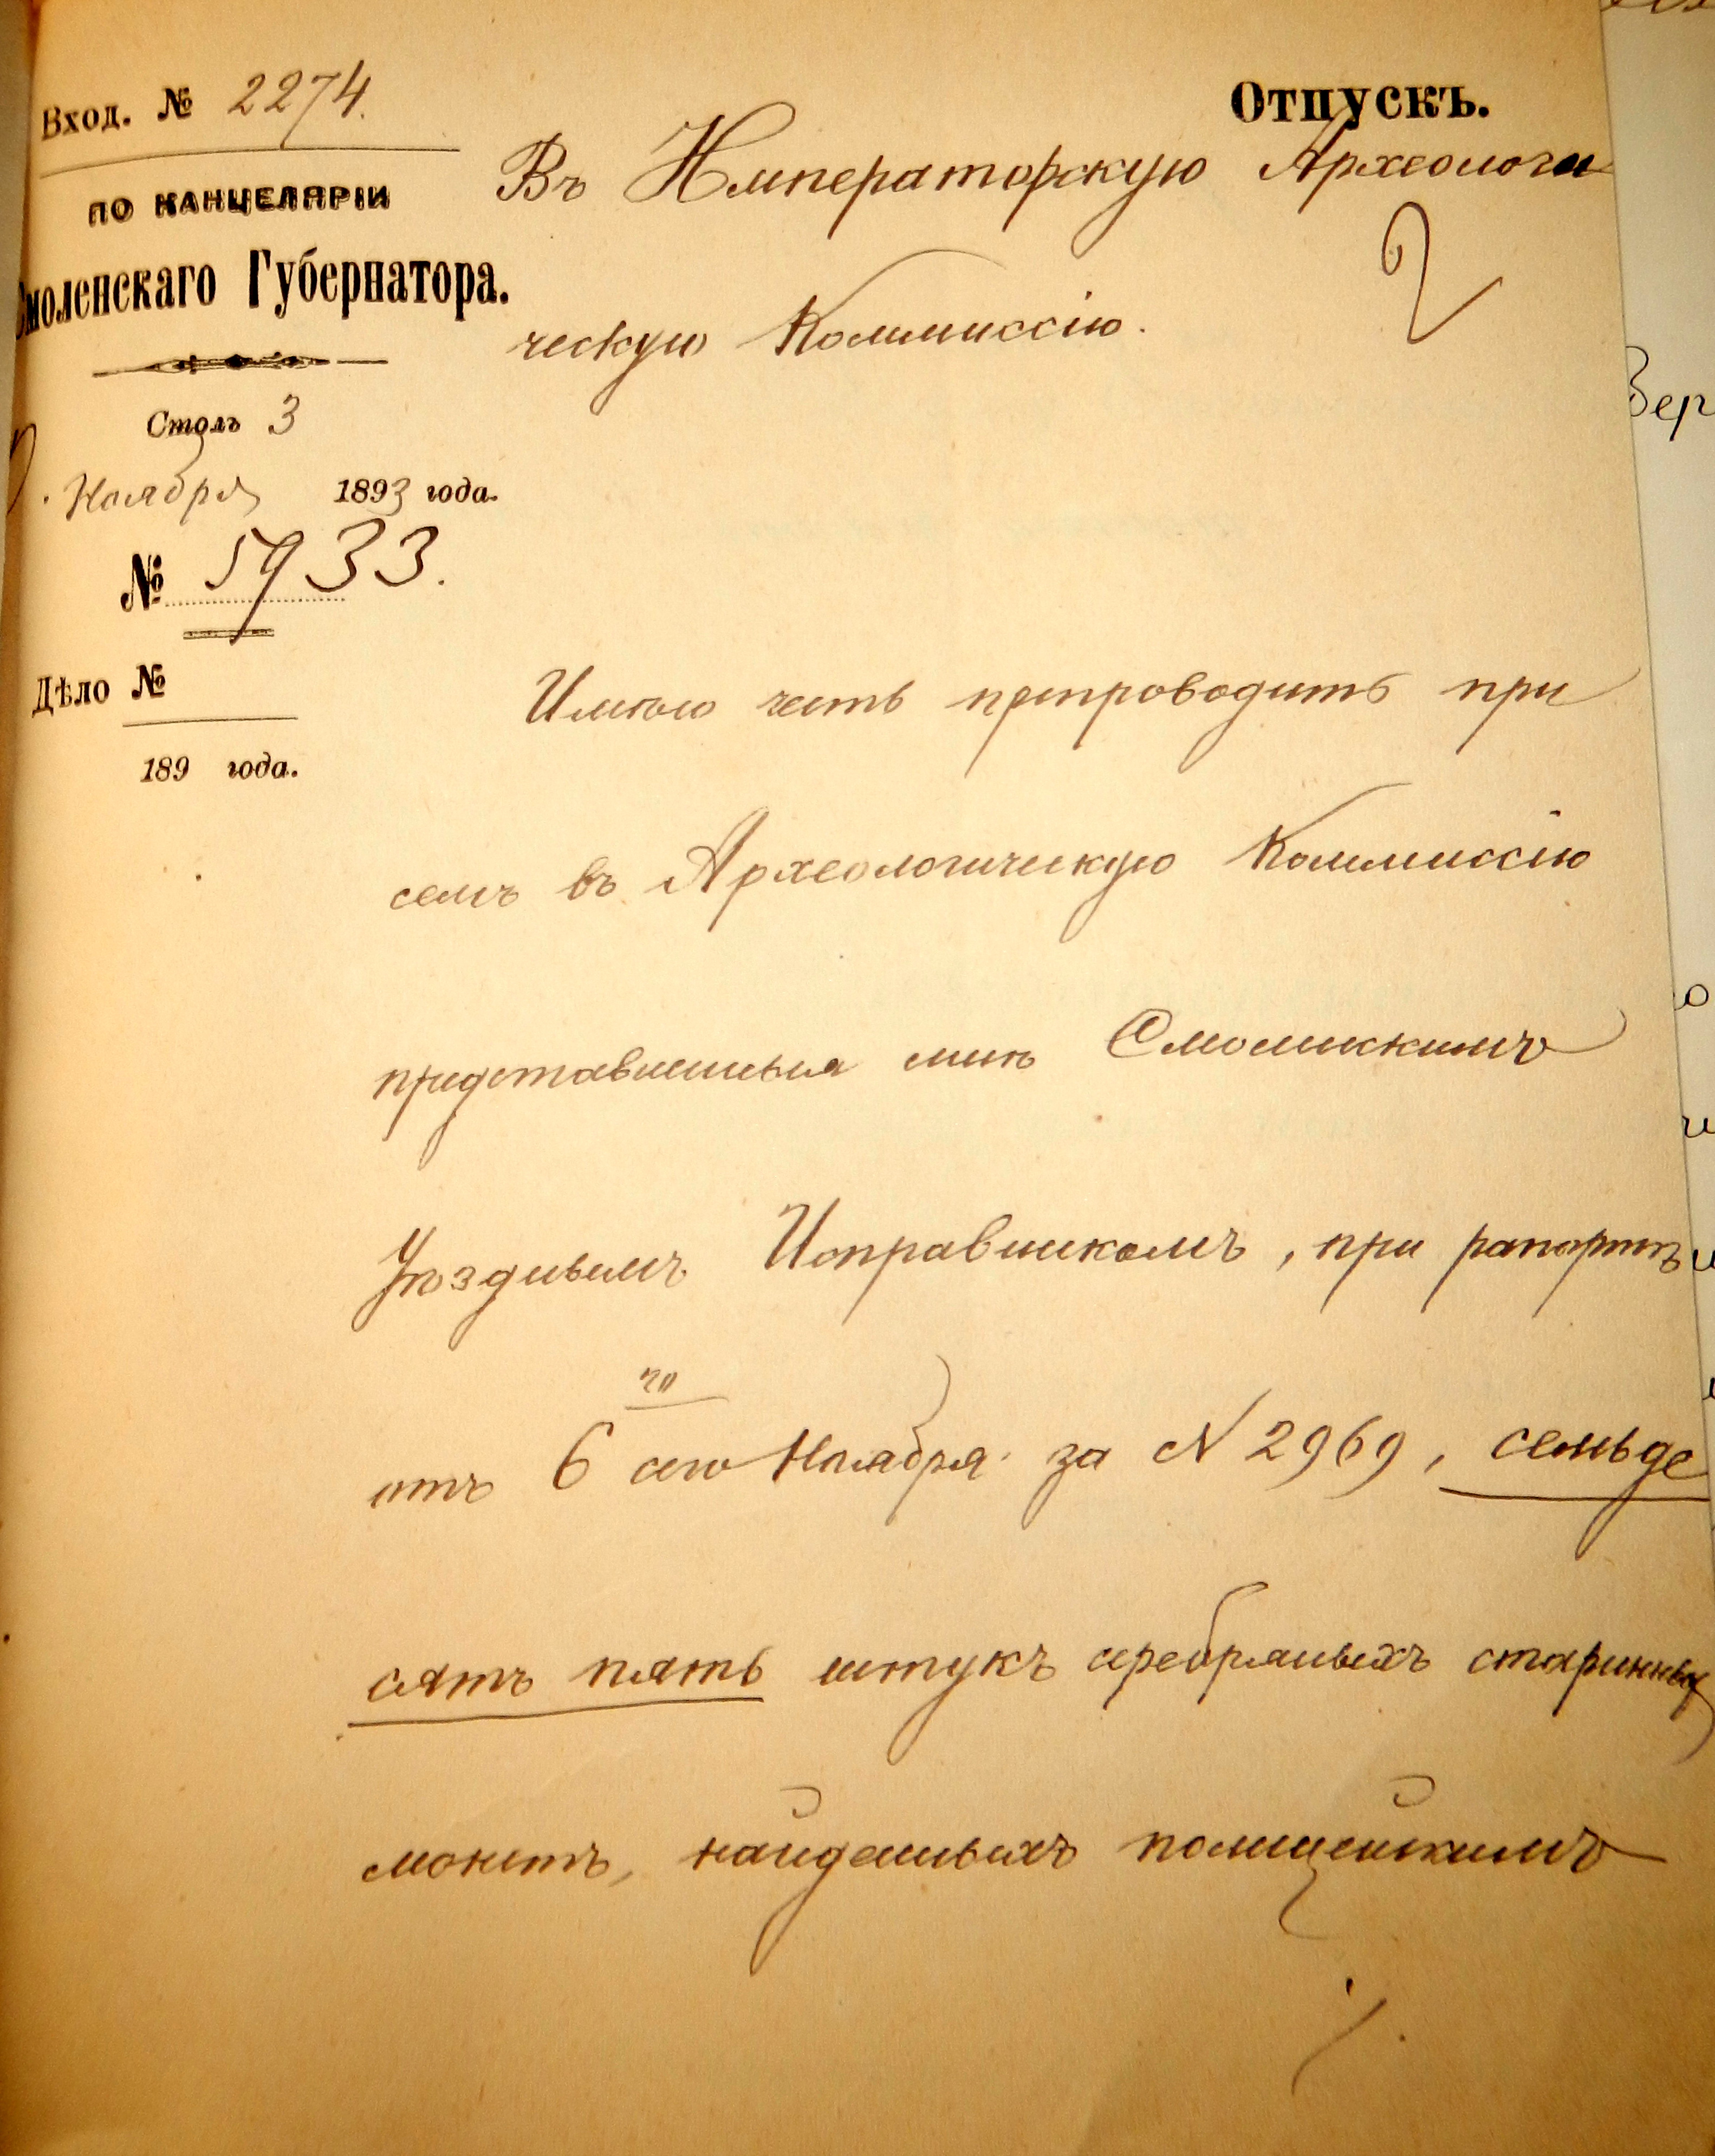 Вход. № 2274.
Отпускъ.
ПО КАНЦЕЛЯРІИ
Смоленскаго Губернатора.
Столъ 3
Ноября 1893 года.
№ 5933.
Дѣло №
189 года.
Въ Императорскую Археологи
2
ческую Коммиссію.
Имѣю честь препроводить при
семъ въ Археологическую Коммиссію
представленныя мнѣ Смоленскимъ
Уѣзднымъ Исправникомъ, при рапортѣ
отъ 6го сего Ноября за N 2969, семьде
сятъ пять штукъ серебряныхъ старинныхъ
монетъ, найденныхъ полицейскимъ